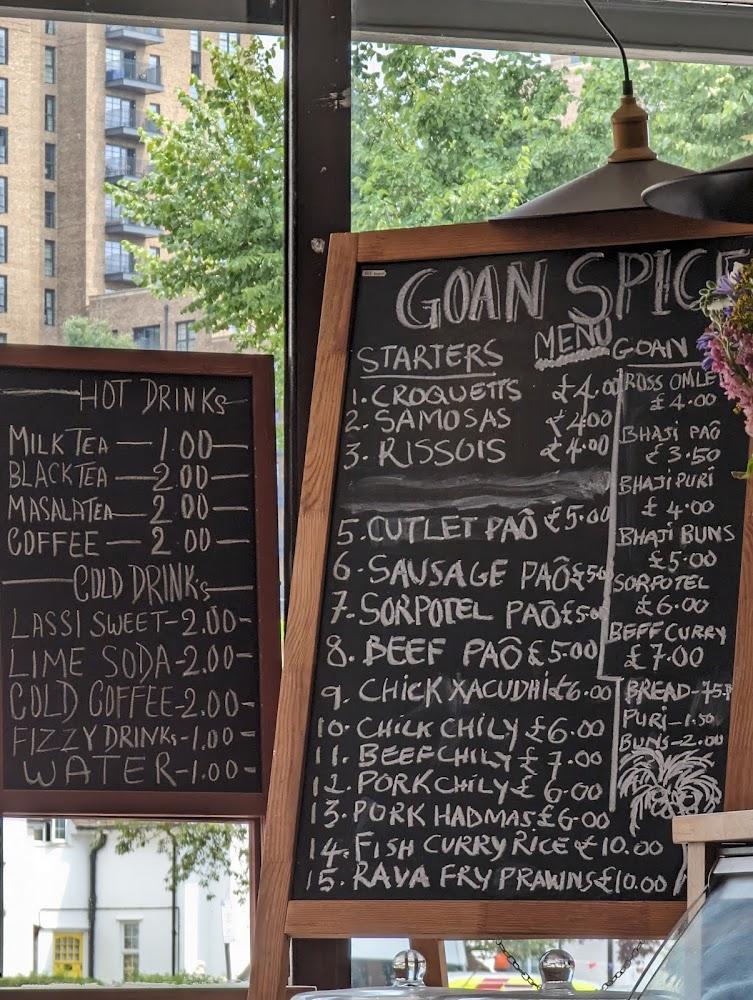 HOT DRINKS
MILK TEA — 1.00
BLACK TEA — 2.00
MASALA TEA — 2.00
COFFEE — 2.00
COLD DRINKS
LASSI SWEET - 2.00
LIME SODA - 2.00
COLD COFFEE - 2.00
FIZZY DRINKS - 1.00
WATER - 1.00
GOAN SPICE
MENU
STARTERS
1. CROQUETTS £4.00
2. SAMOSAS £4.00
3. RISSOIS £4.00
5. CUTLET PAÕ £5.00
6. SAUSAGE PAÕ £5.0
7. SORPOTEL PAÕ £5.00
8. BEEF PAÕ £5.00
9. CHICK XACUDHI £6.00
10. CHICK CHILY £6.00
11. BEEF CHILY £7.00
12. PORK CHILY £6.00
13. PORK HADMAS £6.00
14. FISH CURRY RICE £10.00
15. RAVA FRY PRAWINS £10.00
GOAN
ROSS OMLE
£4.00
BHAJI PAÕ
£3.50
BHAJI PURI
£4.00
BHAJI BUNS
£5.00
SORPOTEL
£6.00
BEFF CURRY
£7.00
BREAD - 75P
PURI - 1.50
BUNS - 2.00